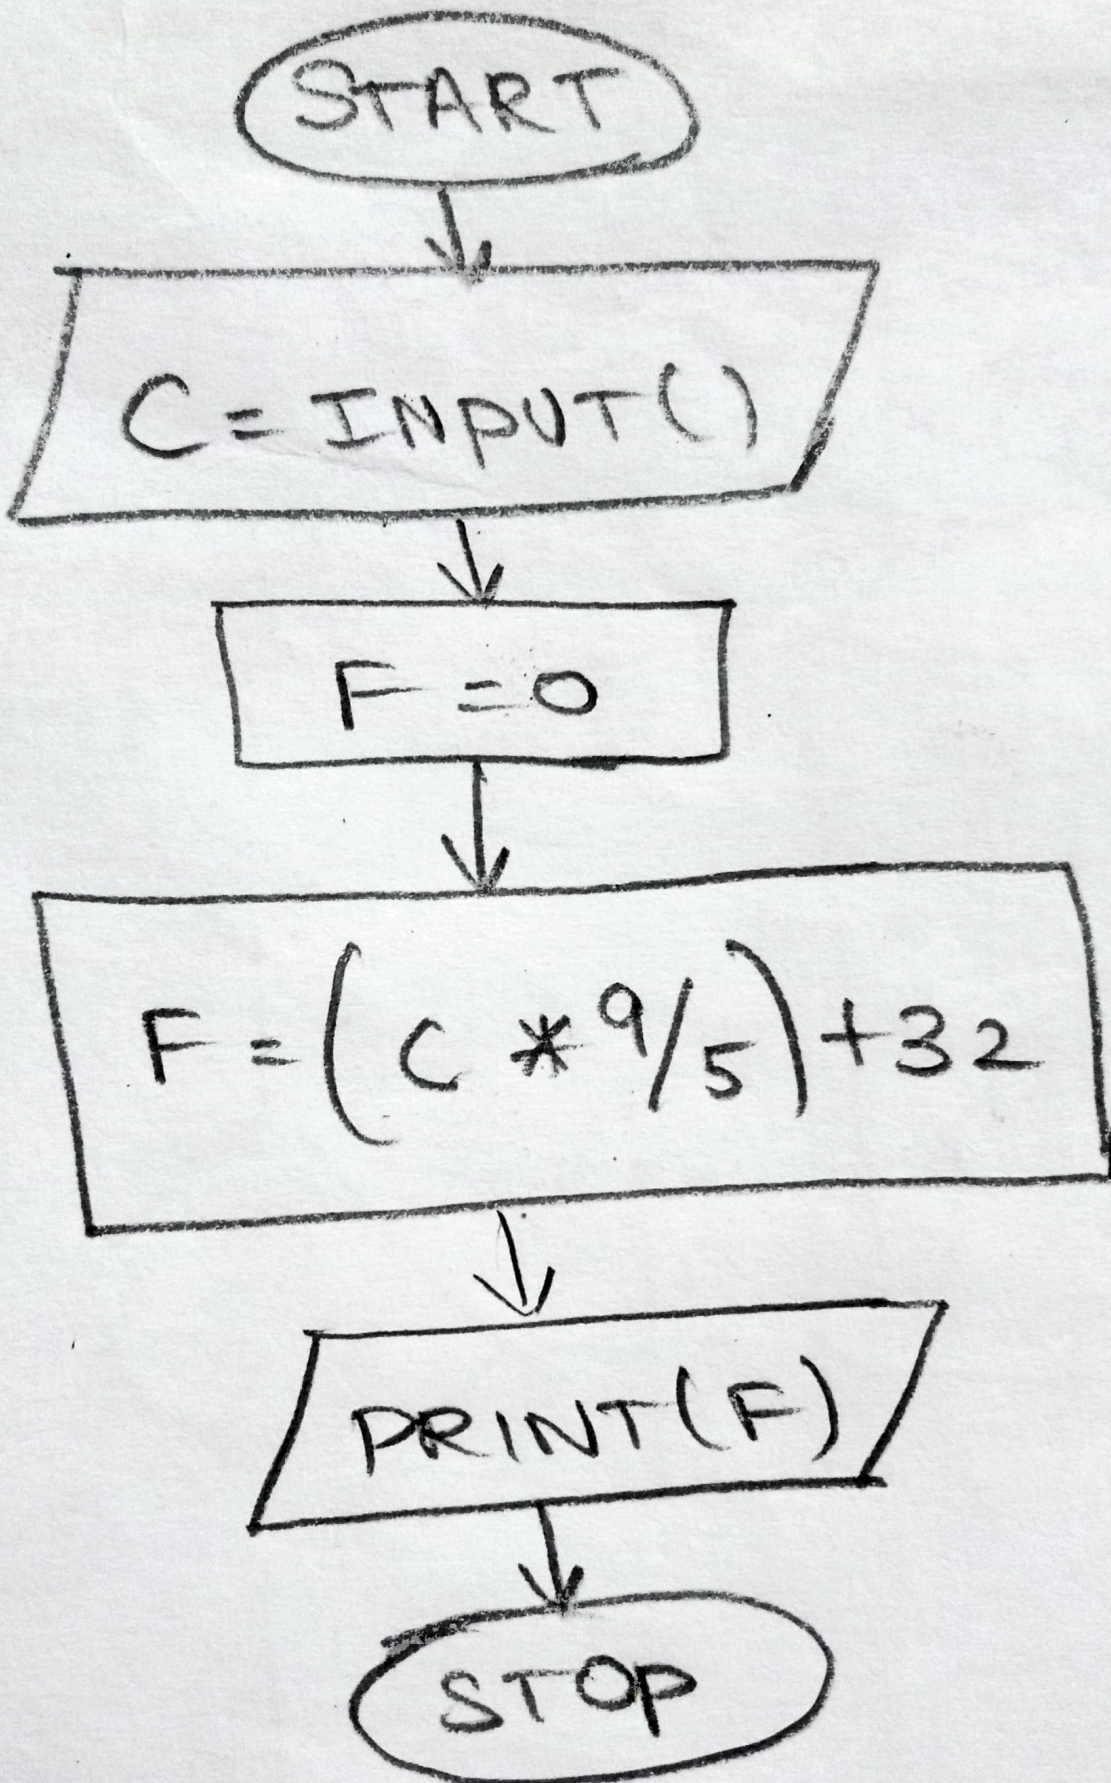 START
C = INPUT()
F = 0
F = (C * 9/5) + 32
PRINT(F)
STOP